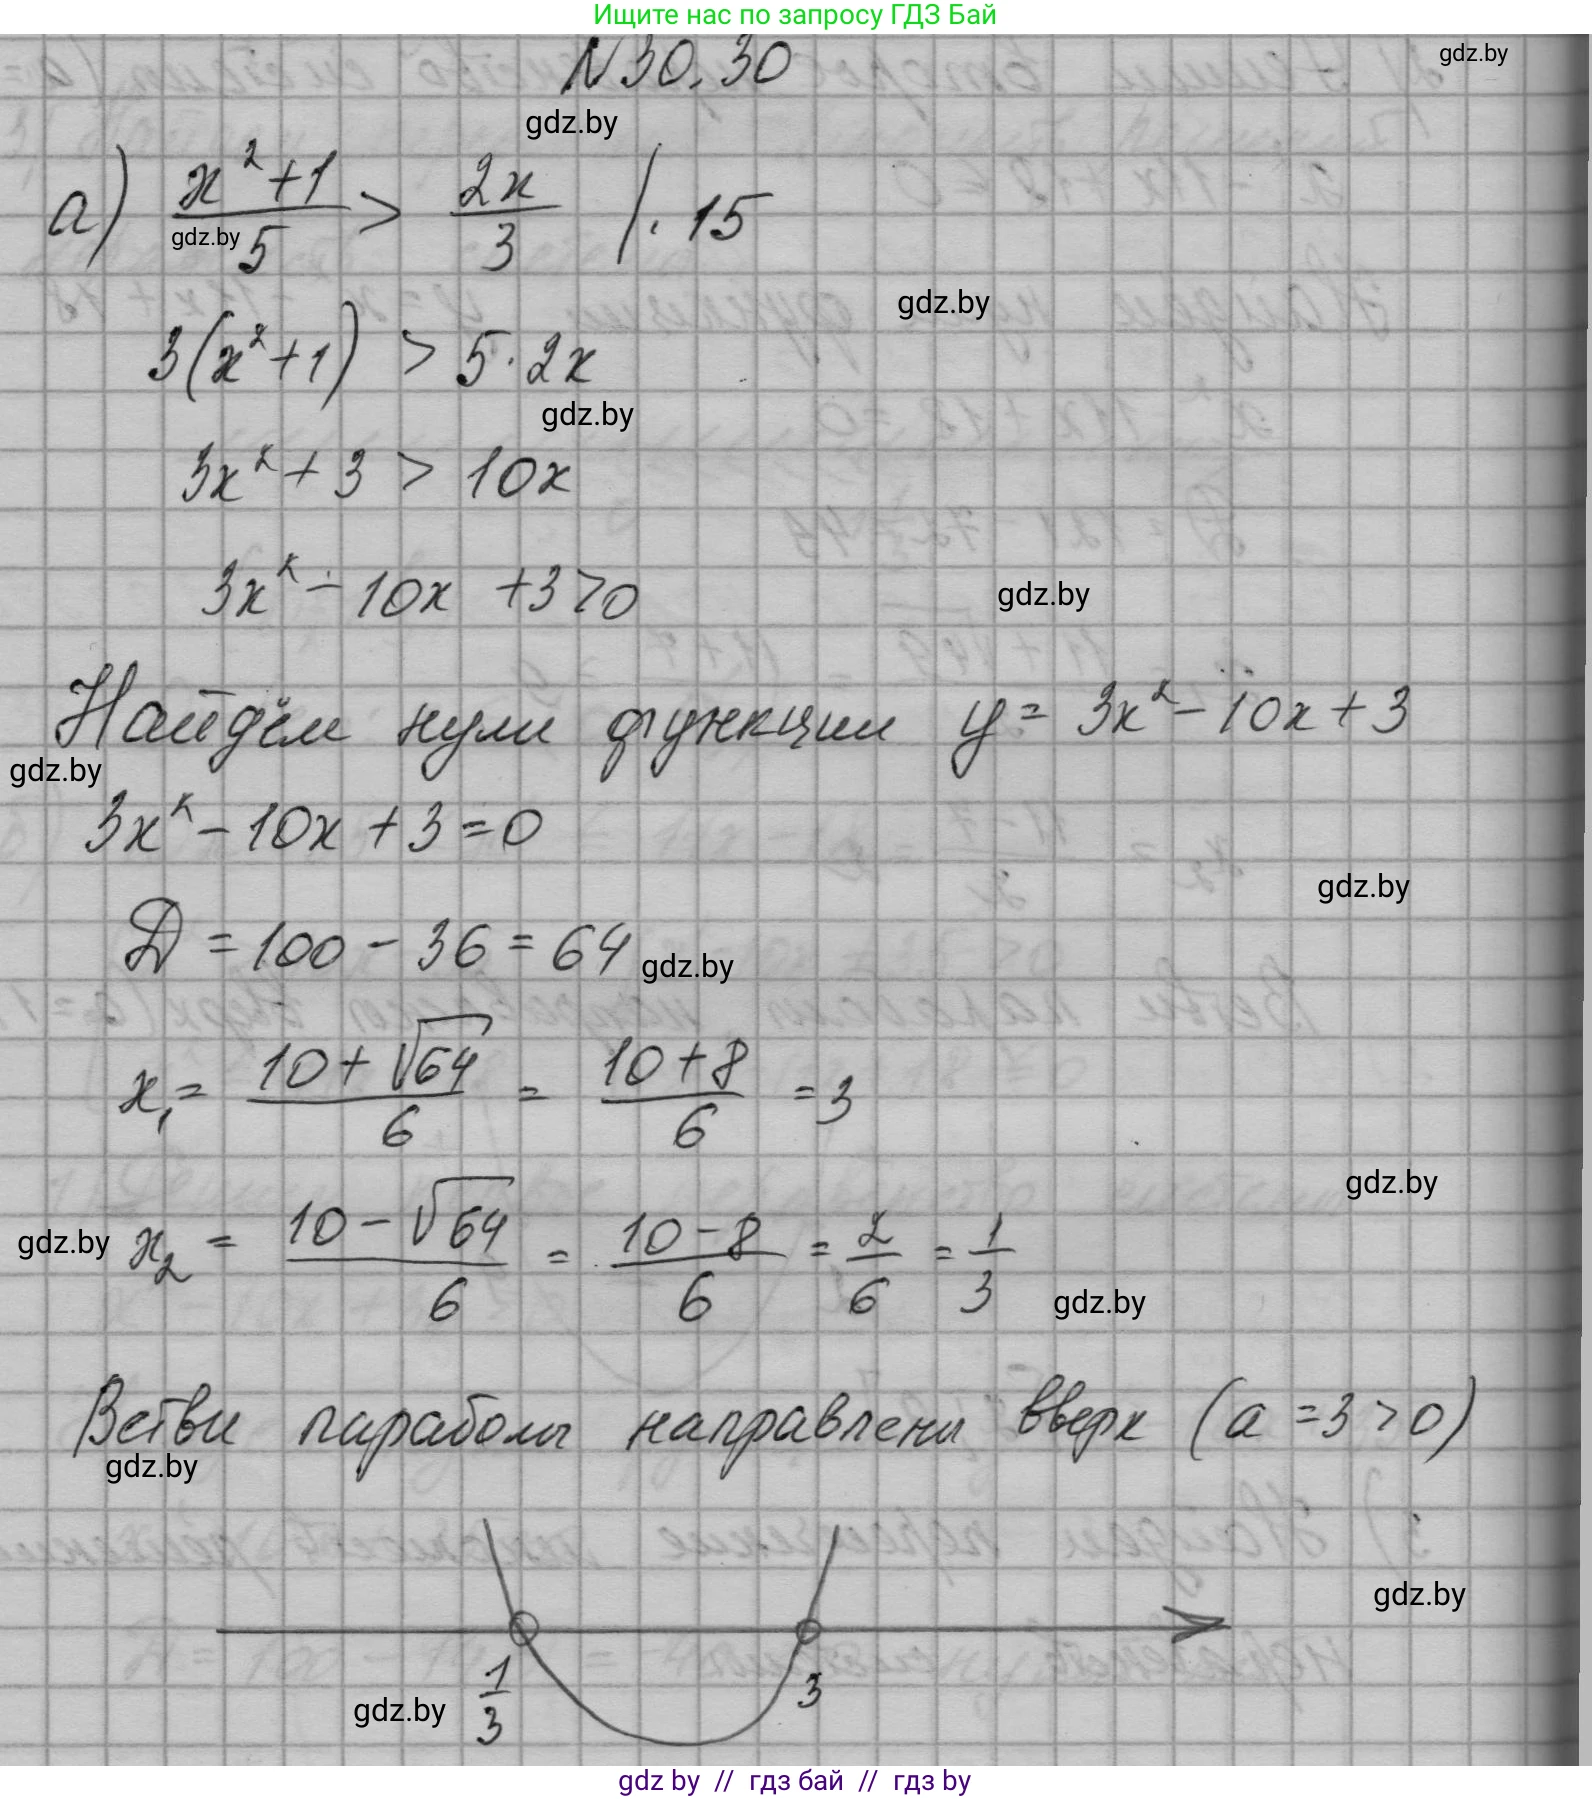 Ищите нас по запросу ГДЗ Бай
N 30.30
gdz.by
gdz.by
а) (x² + 1)/5 > 2x/3 /· 15
gdz.by
gdz.by
3(x² + 1) > 5 · 2x
gdz.by
3x² + 3 > 10x
3x² - 10x + 3 > 0
gdz.by
Найдём нули функции y = 3x² - 10x + 3
gdz.by
3x² - 10x + 3 = 0
gdz.by
D = 100 - 36 = 64
gdz.by
x₁ = (10 + √64)/6 = (10 + 8)/6 = 3
gdz.by
gdz.by
x₂ = (10 - √64)/6 = (10 - 8)/6 = 2/6 = 1/3
gdz.by
Ветви параболы направлены вверх (a = 3 > 0)
gdz.by
gdz.by
1/3 3
gdz.by
gdz by // гдз бай // гдз by